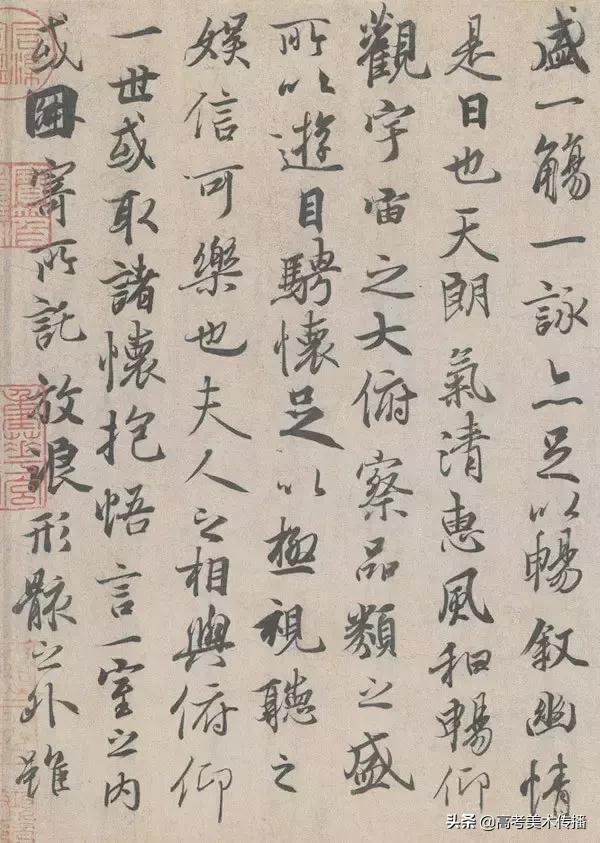 盛一觴一詠亦足以暢敘幽情
是日也天朗氣清惠風和暢仰
觀宇宙之大俯察品類之盛
所以遊目騁懷足以極視聽之
娛信可樂也夫人之相與俯仰
一世或取諸懷抱悟言一室之內
或因寄所託放浪形骸之外雖
头条 @高考美术传播